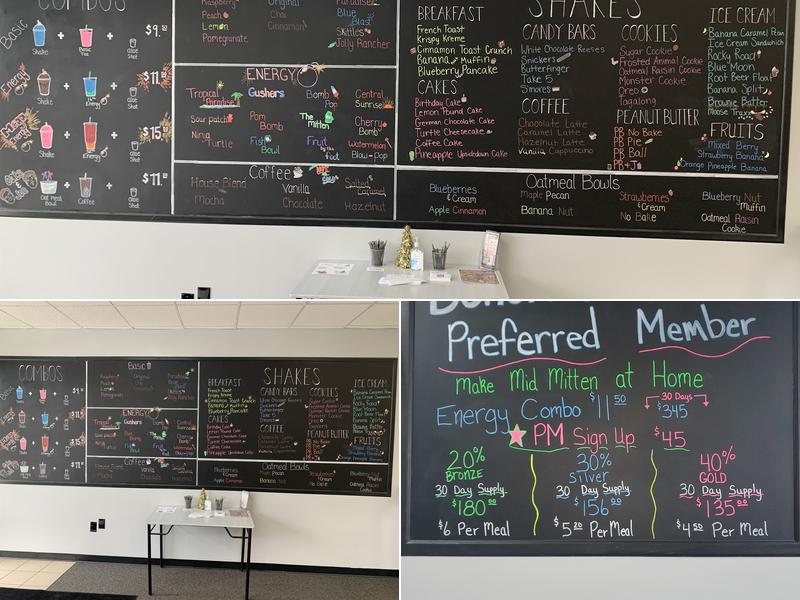 COMBOS
Basic
Shake + Basic Tea + Aloe Shot $9.
Energy
Shake + Energy + Aloe Shot $11.
Shake + Energy + Aloe Shot $15.
Oat Meal Bowl + Coffee + Aloe Shot $11.
Raspberry
Peach
Lemon
Pomegranate
Original
Chai
Cinnamon
Paradise
Blue Blast
Skittles
Jolly Rancher
ENERGY
Tropical Paradise
Gushers
Bomb Pop
Central Sunrise
Sour patch
Pom Bomb
The Mitten
Cherry Bomb
Ninja Turtle
Fish Bowl
Fruit by the foot
Watermelon Blow-Pop
Coffee
House Blend
Vanilla
Salted Caramel
Mocha
Chocolate
Hazelnut
SHAKES
BREAKFAST
French Toast
Krispy Kreme
Cinnamon Toast Crunch
Banana Muffin
Blueberry Pancake
CAKES
Birthday Cake
Lemon Pound Cake
German Chocolate Cake
Turtle Cheesecake
Coffee Cake
Pineapple Upsidedown Cake
CANDY BARS
White Chocolate Reeses
Snickers
Butterfinger
Take 5
S'mores
COFFEE
Chocolate Latte
Caramel Latte
Hazelnut Latte
Vanilla Cappuccino
COOKIES
Sugar Cookie
Frosted Animal Cookie
Oatmeal Raisin Cookie
Monster Cookie
Oreo
Tagalong
PEANUT BUTTER
PB No Bake
PB Pie
PB Ball
PB+J
ICE CREAM
Banana Caramel Pean
Ice Cream Sandwich
Rocky Road
Blue Moon
Root Beer Float
Banana Split
Brownie Batter
Moose Trax
FRUITS
Mixed Berry
Strawberry Banana
Orange Pineapple Banana
Oatmeal Bowls
Blueberries & Cream
Maple Pecan
Strawberries & Cream
Blueberry Nut Muffin
Apple Cinnamon
Banana Nut
No Bake
Oatmeal Raisin Cookie
COMBOS
Basic
ENERGY
Coffee
SHAKES
BREAKFAST
French Toast
Krispy Kreme
Cinnamon Toast Crunch
Blueberry Pancake
CAKES
CANDY BARS
COFFEE
COOKIES
PEANUT BUTTER
ICE CREAM
FRUITS
Oatmeal Bowls
Preferred Member
Make Mid Mitten at Home
Energy Combo $11.50
30 Days
$345
PM Sign Up $45
20%
BRONZE
30 Day Supply
$180.00
$6 Per Meal
30%
Silver
30 Day Supply
$156.00
$5.20 Per Meal
40%
GOLD
30 Day Supply
$135.00
$4.50 Per Meal